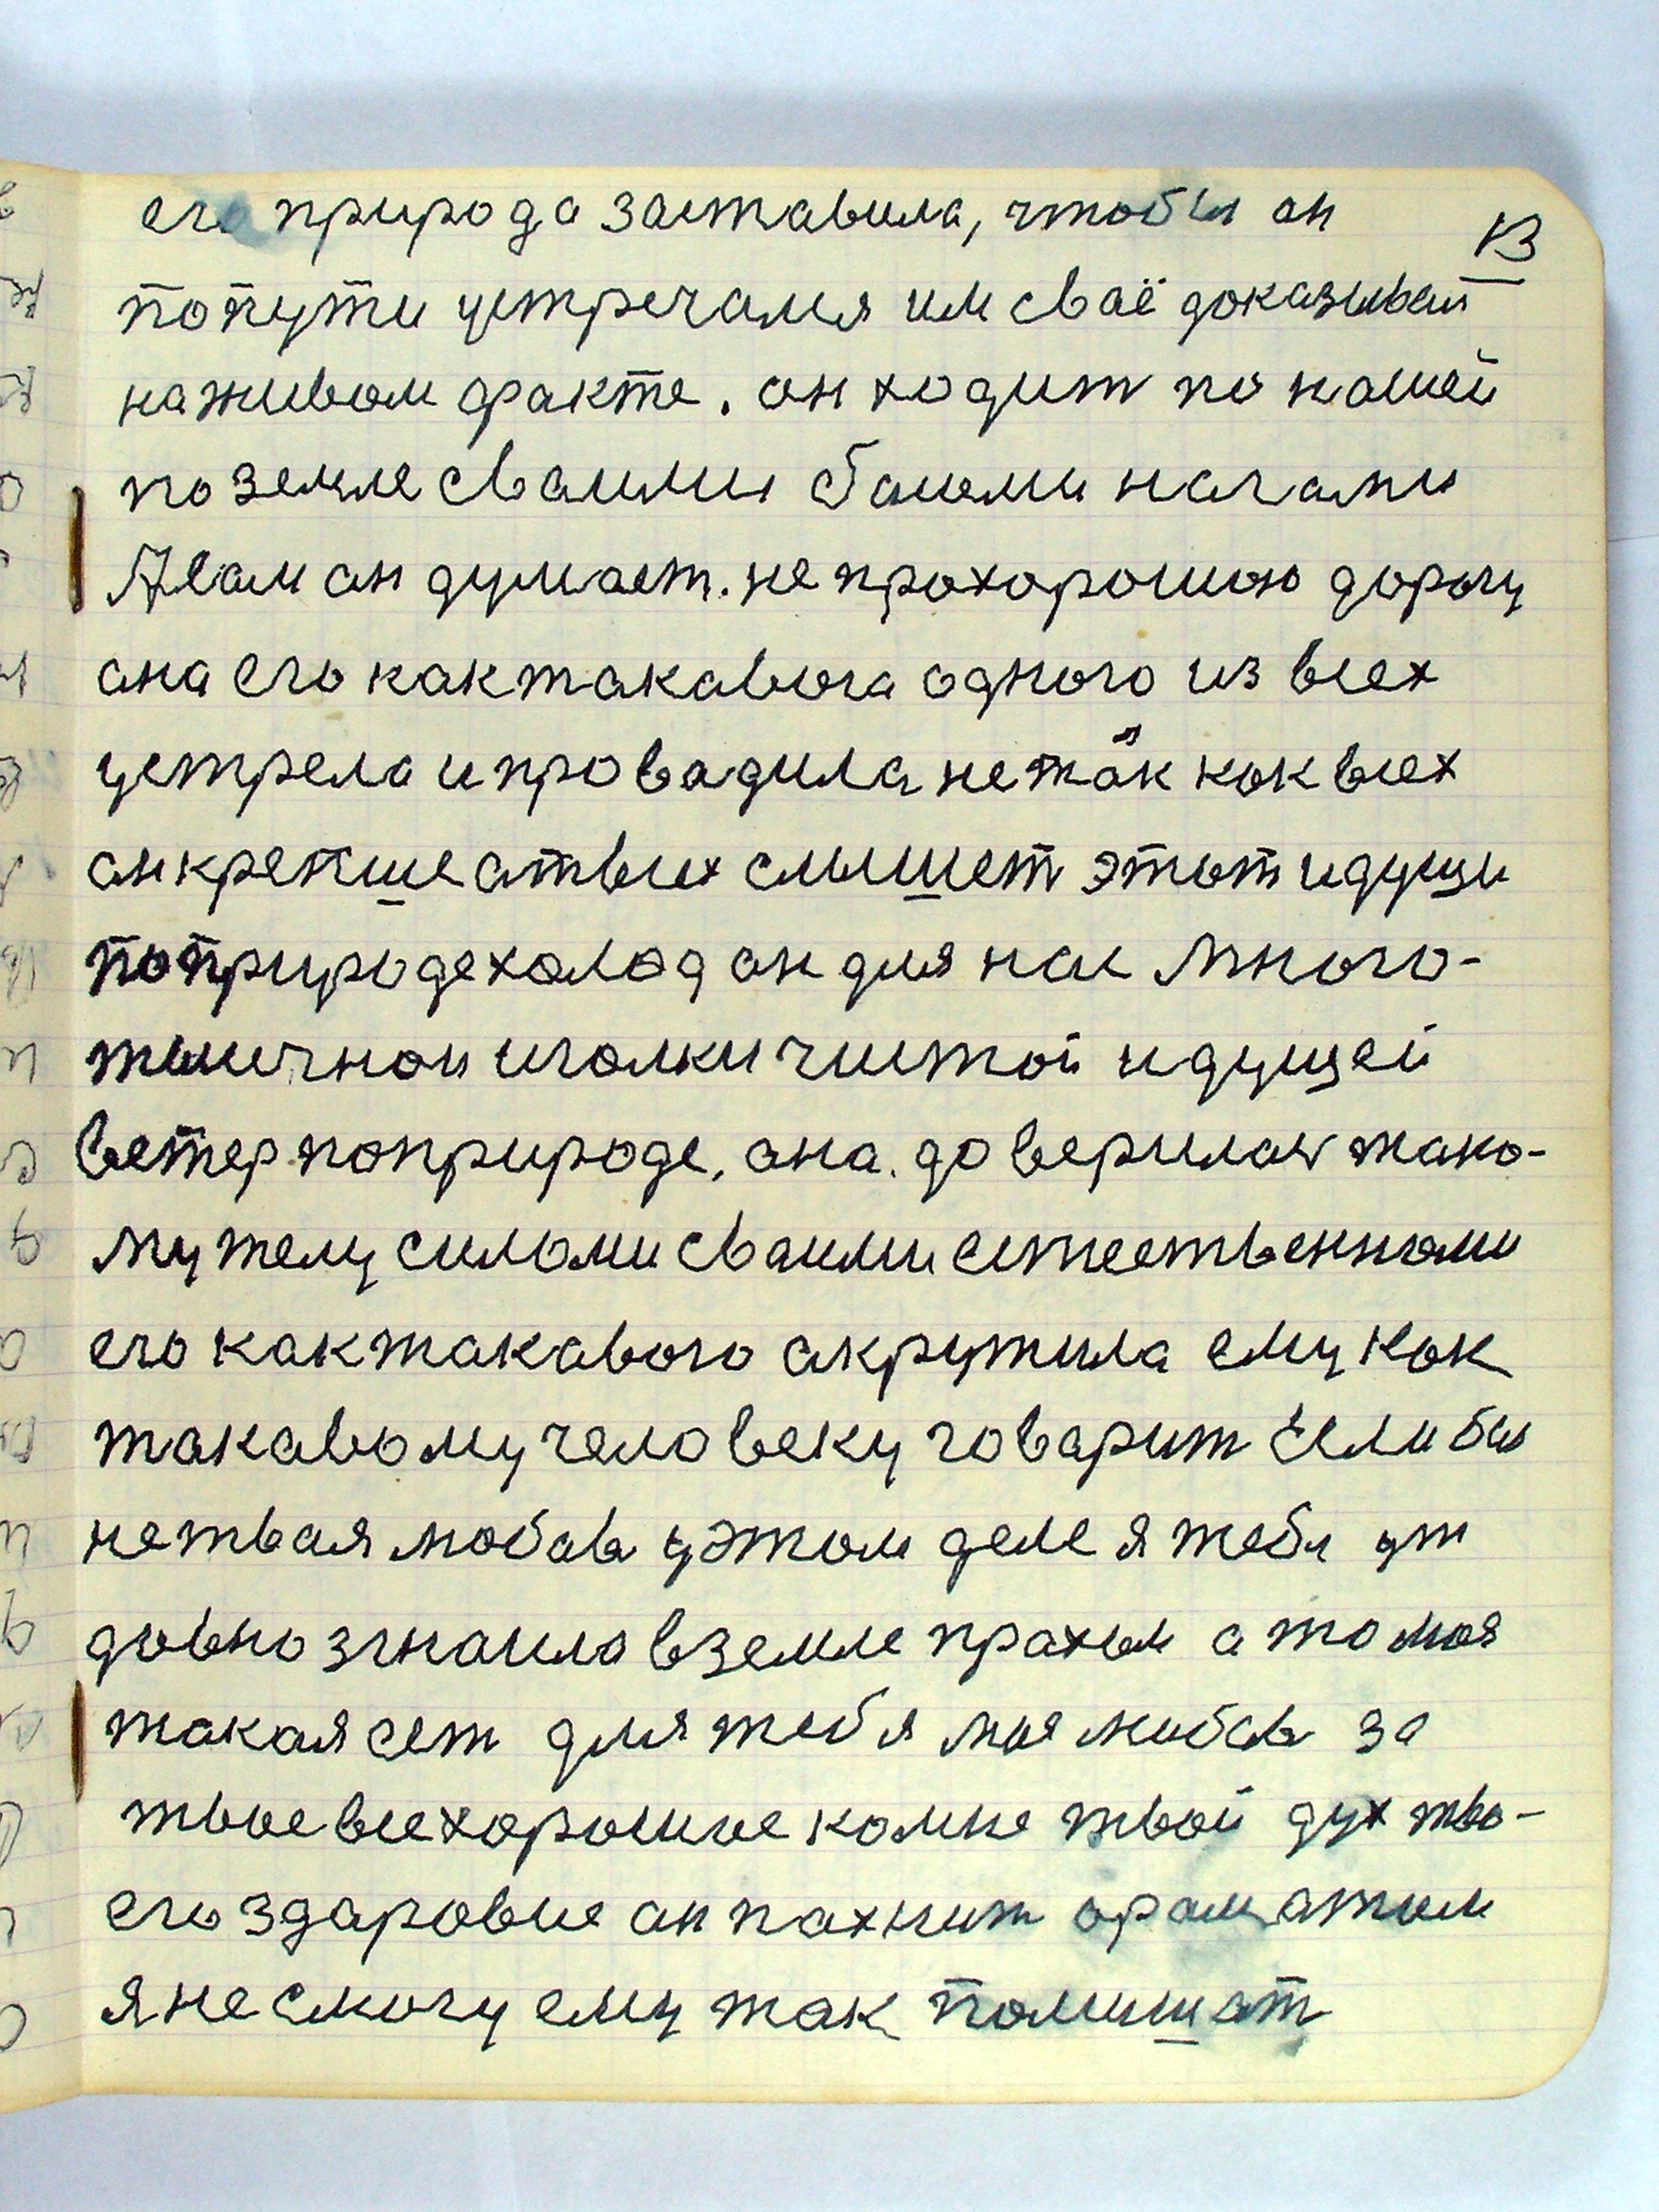 его природа заставила, чтобы ан
13
попути устречался им сваё доказывал
наживом факте. он ходит по нашей
по земле сваими босыми нагами
А сам он думает. не прохорошою дорогу
ана его кактакавога одного из всех
устрела ипровадила нетак как всех
анкрепше атвсех слышет этот идущи
поприроде холод ан для нас много-
тысичнои иголки чистой идущей
ветер поприроде, ана. доверилась тако-
му телу силами сваими естественными
его кактакавого акрутила ему как
такавому человеку говарит Если бы
нетвая любовь уэтом деле я тебя ут
довно згнаила вземле прахым а то моя
такая ест для тебя моя любовь за
твое все хорошое комне твой дух тво-
его здаровие ан пахнит араматым
я не смогу ему так помишат